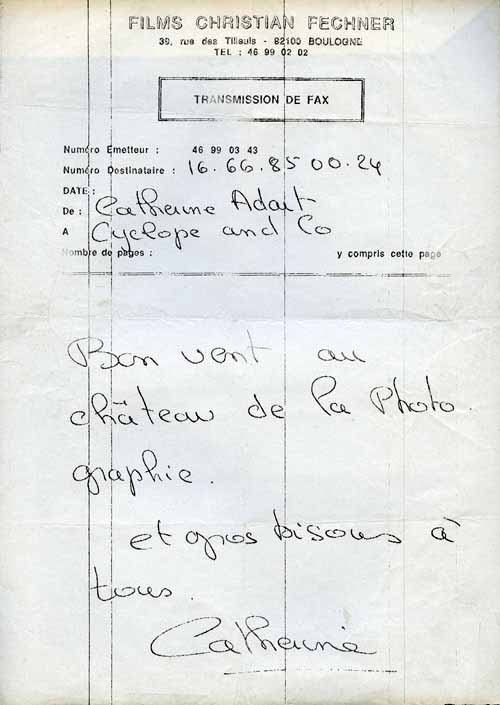 FILMS CHRISTIAN FECHNER
39, rue des Tilleuls - 92100 BOULOGNE
TEL : 46 99 02 02
TRANSMISSION DE FAX
Numéro Emetteur : 46 99 03 43
Numéro Destinataire : 16.66.85 00.24
DATE :
De : Catherine Adart
A Cyclope and Co
Nombre de pages : y compris cette page
Bon vent au
château de la Photo
graphie.
et gros bisous à
tous.
Catherine